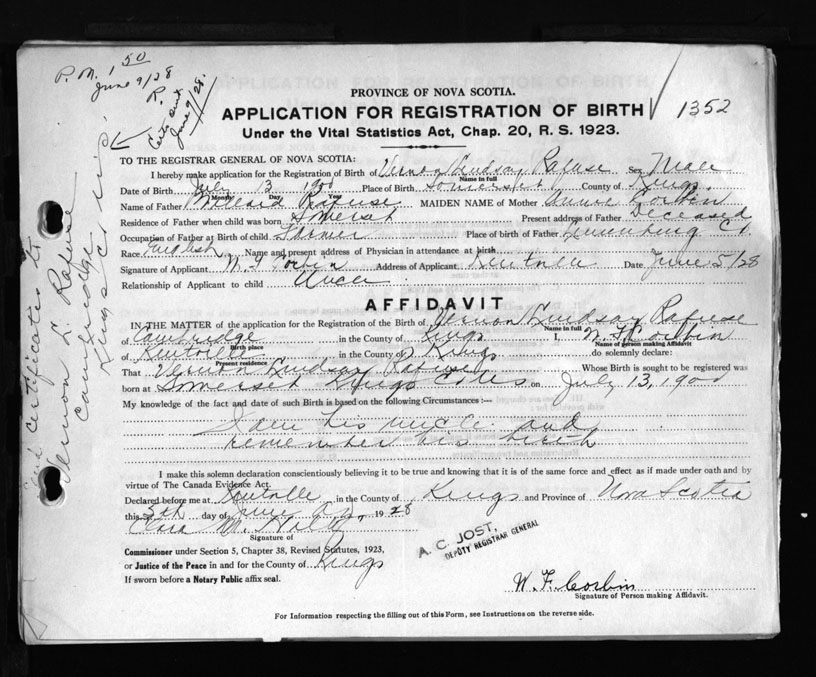 P. M. 1 50
June 9/28
R.
Certs sent
June 9/28.
PROVINCE OF NOVA SCOTIA.
APPLICATION FOR REGISTRATION OF BIRTH 1352
Under the Vital Statistics Act, Chap. 20, R. S. 1923.
TO THE REGISTRAR GENERAL OF NOVA SCOTIA:
I hereby make application for the Registration of Birth of Vernon Lindsay Rafuse Sex Male
Name in full
Date of Birth July 13 1900 Place of Birth Somerset County of Kings
Month Day Year
Name of Father Rafuse MAIDEN NAME of Mother Corbin
Residence of Father when child was born Somerset Present address of Father Deceased
Occupation of Father at Birth of child Farmer Place of birth of Father Lunenburg Co.
Race English Name and present address of Physician in attendance at birth
Signature of Applicant W. F. Corbin Address of Applicant Kentville Date June 5/28
Relationship of Applicant to child Uncle
AFFIDAVIT
IN THE MATTER of the application for the Registration of the Birth of Vernon Lindsay Rafuse
Name in full
of Cambridge in the County of Kings I, W. F. Corbin
Birth place Name of person making Affidavit
of Kentville in the County of Kings do solemnly declare:
Present residence
That Vernon Lindsay Rafuse Whose Birth is sought to be registered was
born at Somerset Kings Co NS on July 13, 1900
My knowledge of the fact and date of such Birth is based on the following Circumstances:—
I am his uncle and
remember his birth
I make this solemn declaration conscientiously believing it to be true and knowing that it is of the same force and effect as if made under oath and by
virtue of The Canada Evidence Act.
Declared before me at Kentville in the County of Kings and Province of Nova Scotia
this 5th day of June A.D., 1928
Signature of
A. C. JOST,
DEPUTY REGISTRAR GENERAL
Commissioner under Section 5, Chapter 38, Revised Statutes, 1923,
or Justice of the Peace in and for the County of Kings
If sworn before a Notary Public affix seal.
W. F. Corbin
Signature of Person making Affidavit.
For Information respecting the filling out of this Form, see Instructions on the reverse side.
certificates to
Vernon L. Rafuse
Cambridge
Kings Co N.S.